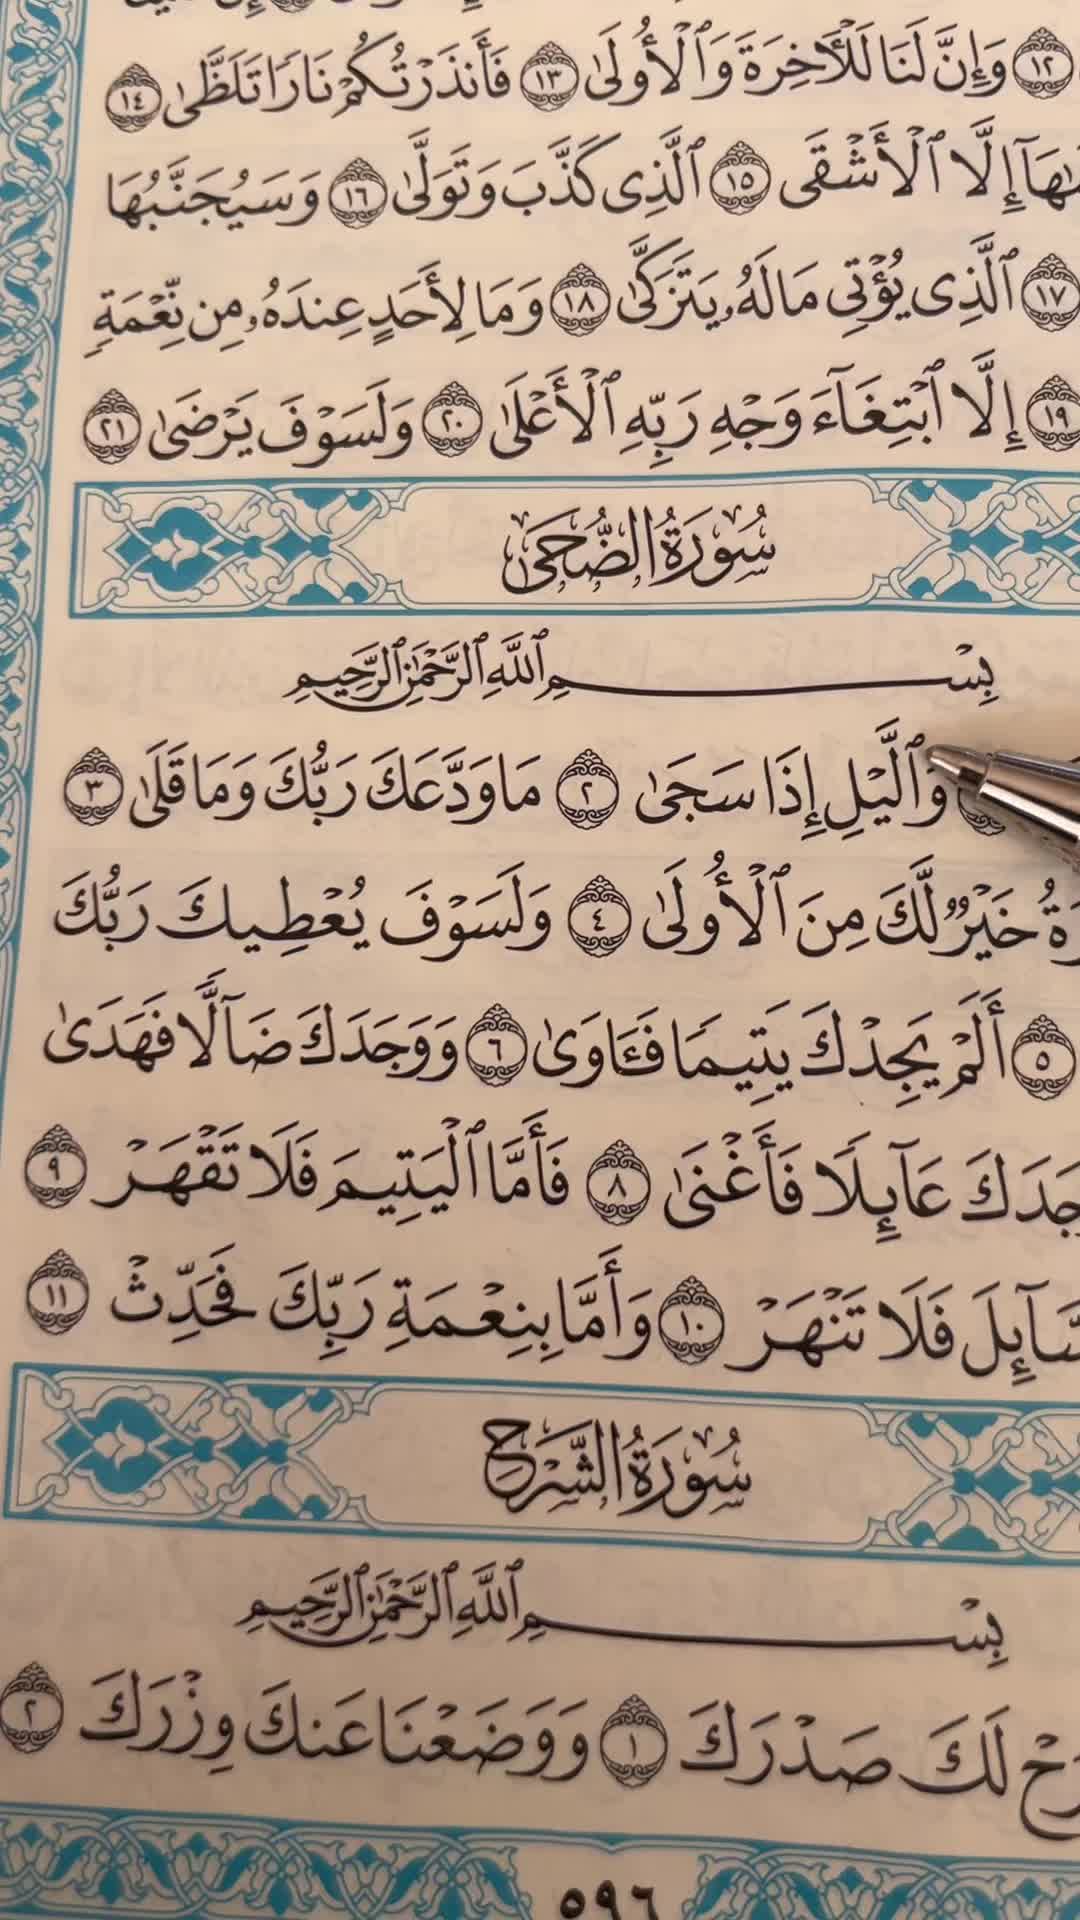 ١٢ وَإِنَّ لَنَا لَلْأَخِرَةَ وَٱلْأُولَىٰ ١٣ فَأَنذَرْتُكُمْ نَارًا تَلَظَّىٰ ١٤
إِلَّا ٱلْأَشْقَى ١٥ ٱلَّذِى كَذَّبَ وَتَوَلَّىٰ ١٦ وَسَيُجَنَّبُهَا
١٧ ٱلَّذِى يُؤْتِى مَالَهُۥ يَتَزَكَّىٰ ١٨ وَمَا لِأَحَدٍ عِندَهُۥ مِن نِّعْمَةٍ
١٩ إِلَّا ٱبْتِغَآءَ وَجْهِ رَبِّهِ ٱلْأَعْلَىٰ ٢٠ وَلَسَوْفَ يَرْضَىٰ ٢١
سُورَةُ الضُّحَىٰ
بِسْمِ ٱللَّهِ ٱلرَّحْمَٰنِ ٱلرَّحِيمِ
وَٱلَّيْلِ إِذَا سَجَىٰ ٢ مَا وَدَّعَكَ رَبُّكَ وَمَا قَلَىٰ ٣
خَيْرٌ لَّكَ مِنَ ٱلْأُولَىٰ ٤ وَلَسَوْفَ يُعْطِيكَ رَبُّكَ
٥ أَلَمْ يَجِدْكَ يَتِيمًا فَـَٔاوَىٰ ٦ وَوَجَدَكَ ضَآلًّا فَهَدَىٰ
عَآئِلًا فَأَغْنَىٰ ٨ فَأَمَّا ٱلْيَتِيمَ فَلَا تَقْهَرْ ٩
فَلَا تَنْهَرْ ١٠ وَأَمَّا بِنِعْمَةِ رَبِّكَ فَحَدِّثْ ١١
سُورَةُ الشَّرْحِ
بِسْمِ ٱللَّهِ ٱلرَّحْمَٰنِ ٱلرَّحِيمِ
لَكَ صَدْرَكَ ١ وَوَضَعْنَا عَنكَ وِزْرَكَ ٢
٥٩٦